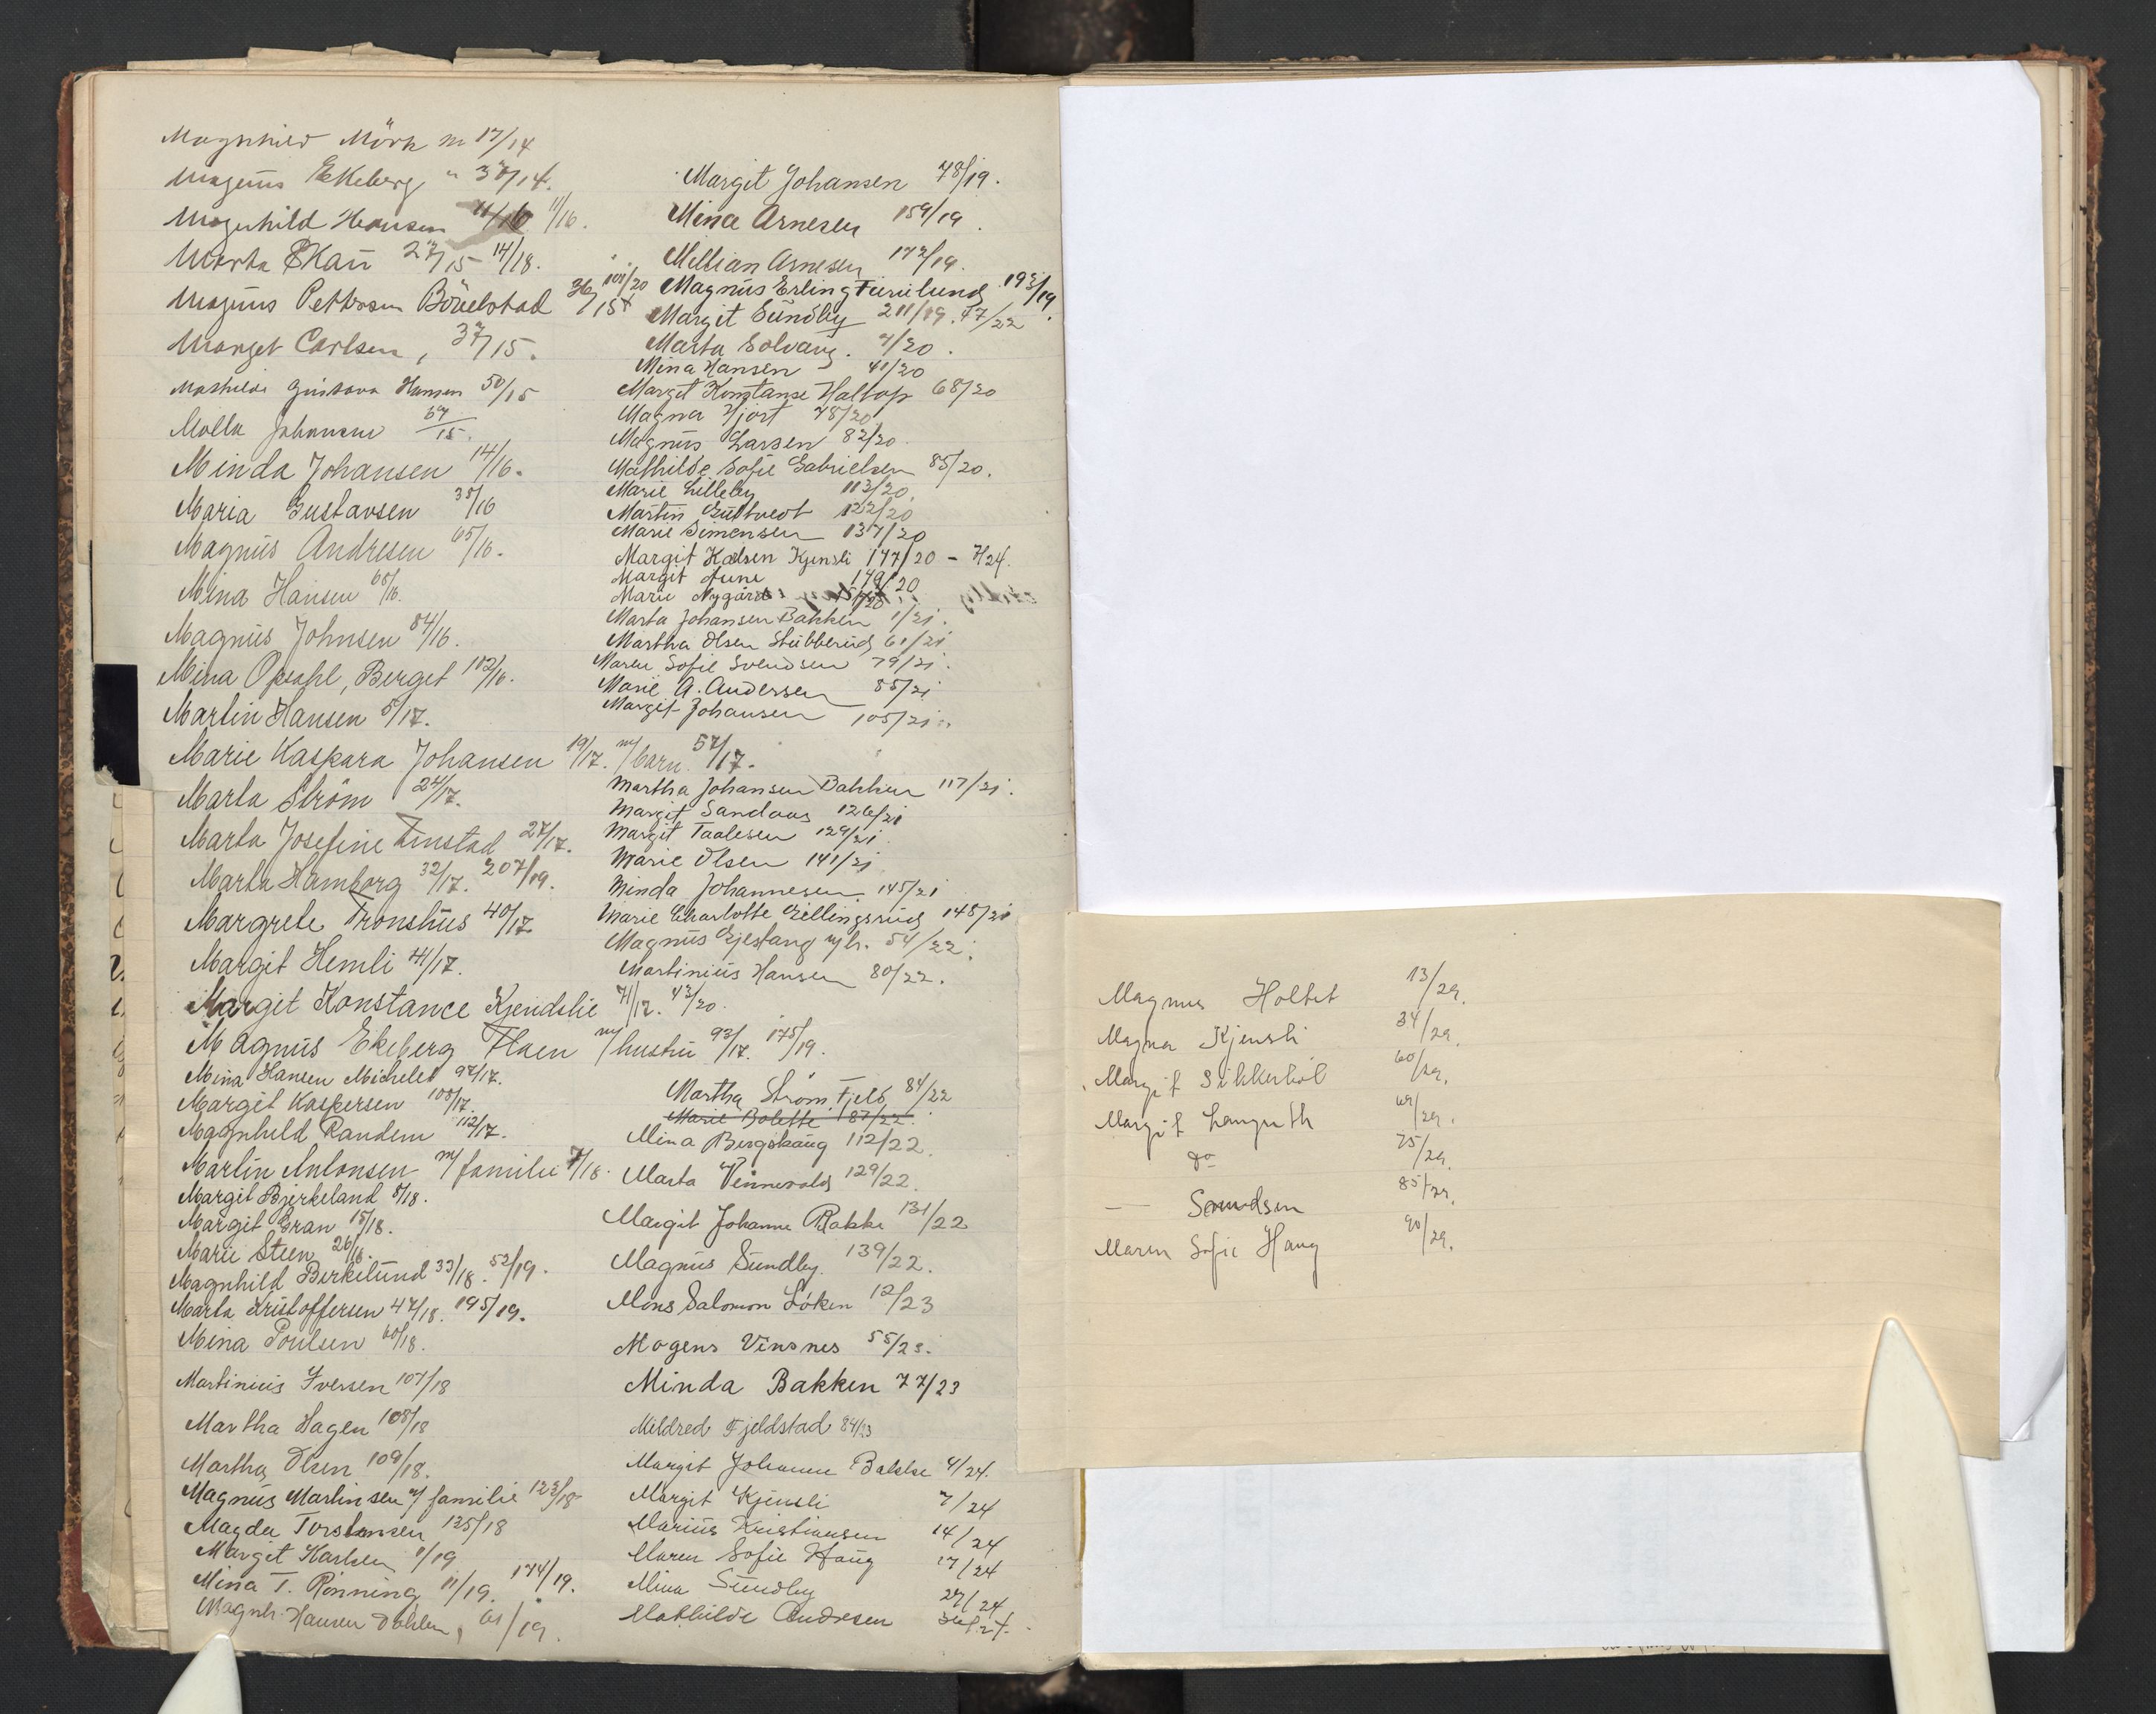 Magnhild Mörk m 17/14
Magnus Ekeberg " 37/14.
Magnhild Hansen 11/16 11/16.
Marta Skau 27/15 14/18.
Magnus Petterson Bövelstad 36/15 101/20
Marget Carlsen, 37/15.
Mathilde Gustava Hansen 50/15
Molla Johansen 67/15.
Minda Johansen 14/16.
Maria Gustavsen 35/16
Magnus Andresen 65/16.
Mina Hansen 68/16.
Magnus Johnsen 84/16.
Mina Opsahl, Berget 102/16.
Martin Hansen 5/17.
Marie Kaspara Johansen 19/17. m/barn 57/17.
Marta Ström 24/17.
Marta Josefine Finstad 27/17.
Marta Hamborg 32/17. 207/19.
Margrete Tronshus 40/17
Margit Hemli 41/17.
Margit Konstance Kjendslie 71/17. 43/20.
Magnus Ekeberg Flaen m/hustru 93/17. 175/19.
Mina Hansen Michelet 97/17.
Margit Kaspersen 108/17.
Magnhild Randem 112/17.
Martin Antonsen m/familie 7/18.
Margit Bjerkeland 8/18.
Margit Gran 15/18.
Marie Steen 26/18.
Magnhild Berkelund 33/18. 52/19.
Marta Kristoffersen 47/18. 195/19.
Mina Poulsen 60/18.
Martinius Iversen 107/18
Martha Hagen 108/18
Martha Olsen 109/18.
Magnus Martinsen m/familie 123/18
Magda Torstensen 135/18
Margit Karlsen 1/19
Mina T. Rönning 11/19. 174/19.
Magnh. Hansen Dahlen, 61/19.
Margit Johansen 78/19.
Mina Arnesen 159/19.
Millian Arnesen 172/19.
Magnus Erling Furulund 193/19.
Margit Sundby 211/19. 47/22
Marta Solvang. 9/20.
Mina Hansen 41/20
Margit Konstanse Haltop 68/20
Magna Hjort 78/20
Magnus Larsen 82/20.
Mathilde Sofie Gabrielsen 85/20.
Marie Lilleby 113/20.
Martin Gultvedt 122/20
Marie Simensen 137/20
Margit Kolsen Kjensli 147/20 - 7/24.
Margit Aune 149/20
Marie Nygård 151/20
Marta Johansen Bakken 1/21.
Martha Olsen Stubberud 61/21
Maren Sofie Svendsen 79/21.
Marie A. Andersen 85/21
Margit Johansen 105/21.
Martha Johansen Bakken 117/21.
Margit Sandaas 126/21
Margit Taalesen 129/21
Marie Olsen 141/21
Minda Johannesen 145/21
Marie Charlotte Gillingsrud 148/21
Magnus Gjestang m/h. 54/22.
Martinius Hansen 80/22.
Martha Strøm Fjeld 84/22
Marie Bolette 87/22.
Mina Bergskaug 112/22.
Marta Vennevold 129/22.
Margit Johanne Bakke 131/22
Magnus Sundby. 139/22.
Mons Salomon Löken 12/23
Mogens Vinsnes 55/23.
Minda Bakken 77/23
Mildred Fjeldstad 84/23
Margit Johanne Bakke 4/24.
Margit Kjensli 7/24
Marius Kristiansen 14/24
Maren Sofie Haug 17/24
Mina Sundby 27/24
Mathilde Andresen
Magnus Holtet 13/29.
Magna Kjensli 34/29.
Margit Sikkerbøl 60/29.
Margit Langseth 69/29.
do 75/29.
— 85/29.
Maren Sofie Haug 90/29.